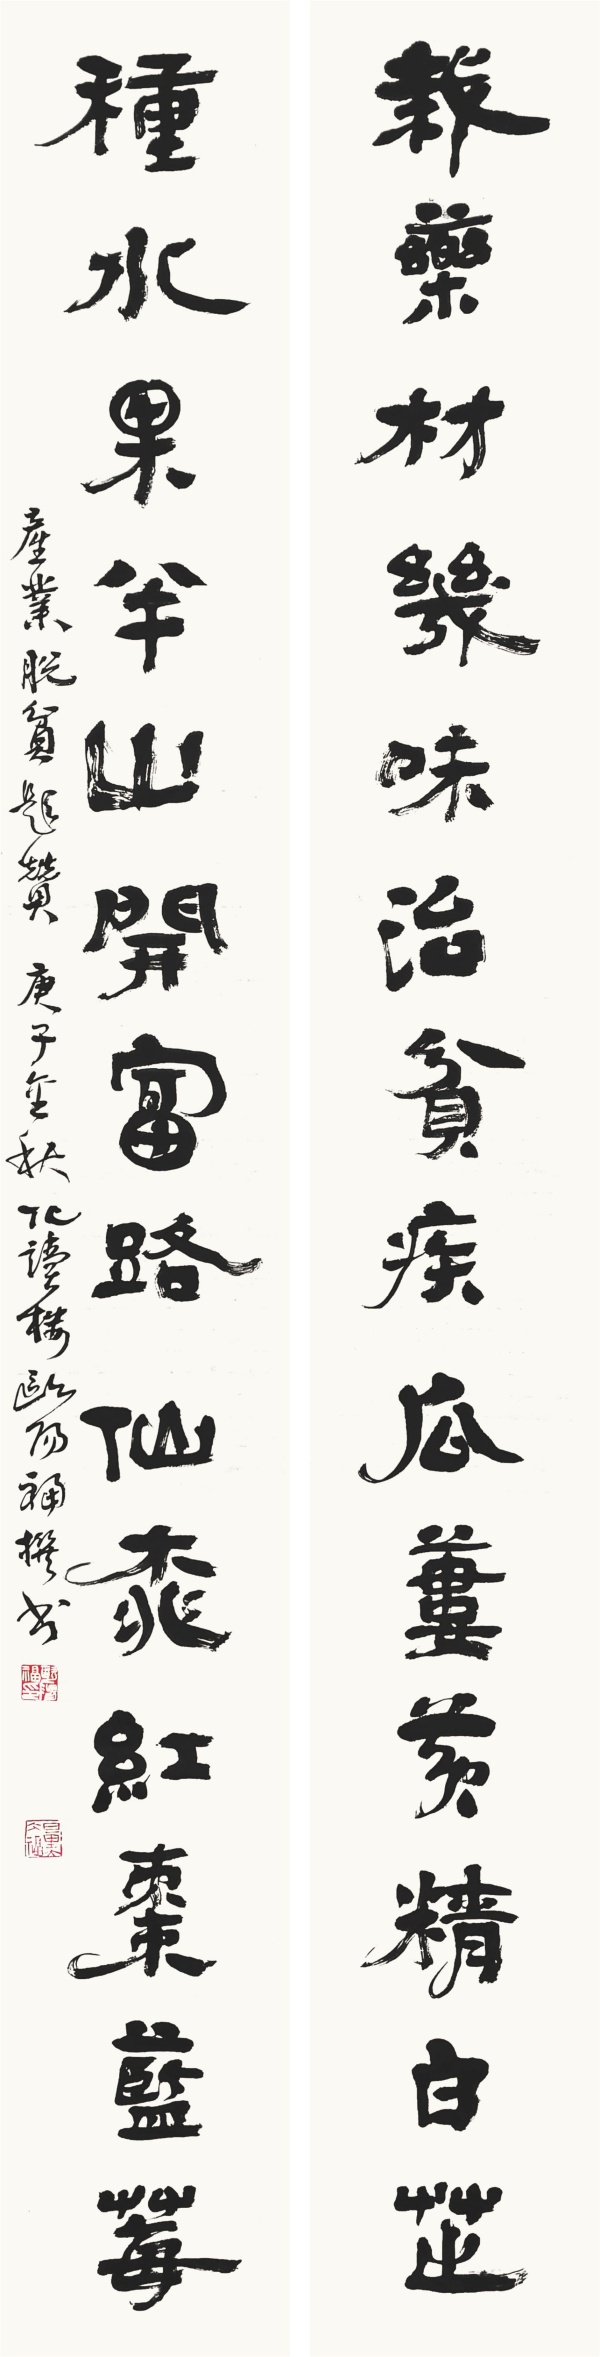 栽藥材幾味治貧疾瓜蔞黄精白芷
種水果半山開富路仙桃紅棗藍莓
產業脫貧題贊 庚子金秋 讀樓歐陽福撰書